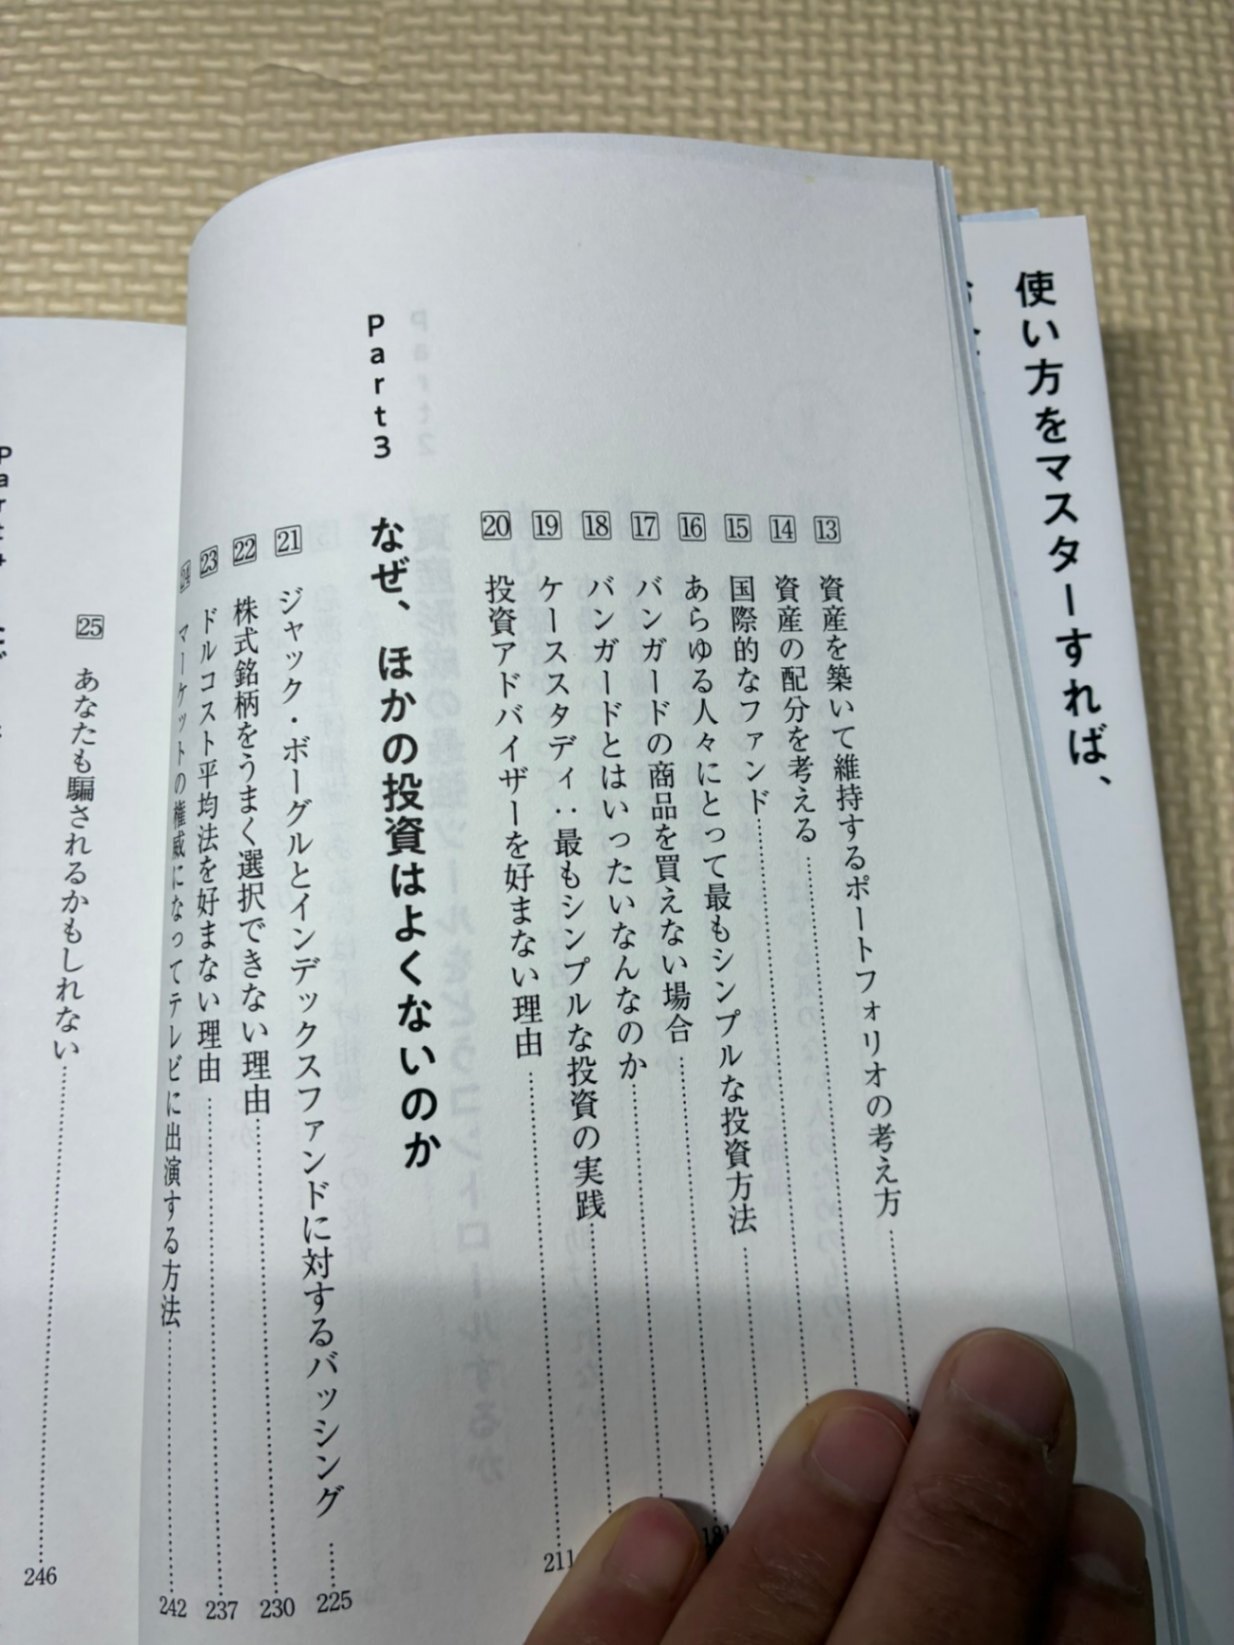 使い方をマスターすれば、
13 資産を築いて維持するポートフォリオの考え方
14 資産の配分を考える
15 国際的なファンド
16 あらゆる人々にとって最もシンプルな投資方法
17 バンガードの商品を買えない場合 181
18 バンガードとはいったいなんなのか
19 ケーススタディ:最もシンプルな投資の実践
20 投資アドバイザーを好まない理由 211
Part3 なぜ、ほかの投資はよくないのか
21 ジャック・ボーグルとインデックスファンドに対するバッシング 225
22 株式銘柄をうまく選択できない理由 230
23 ドルコスト平均法を好まない理由 237
24 マーケットの権威になってテレビに出演する方法 242
25 あなたも騙されるかもしれない 246